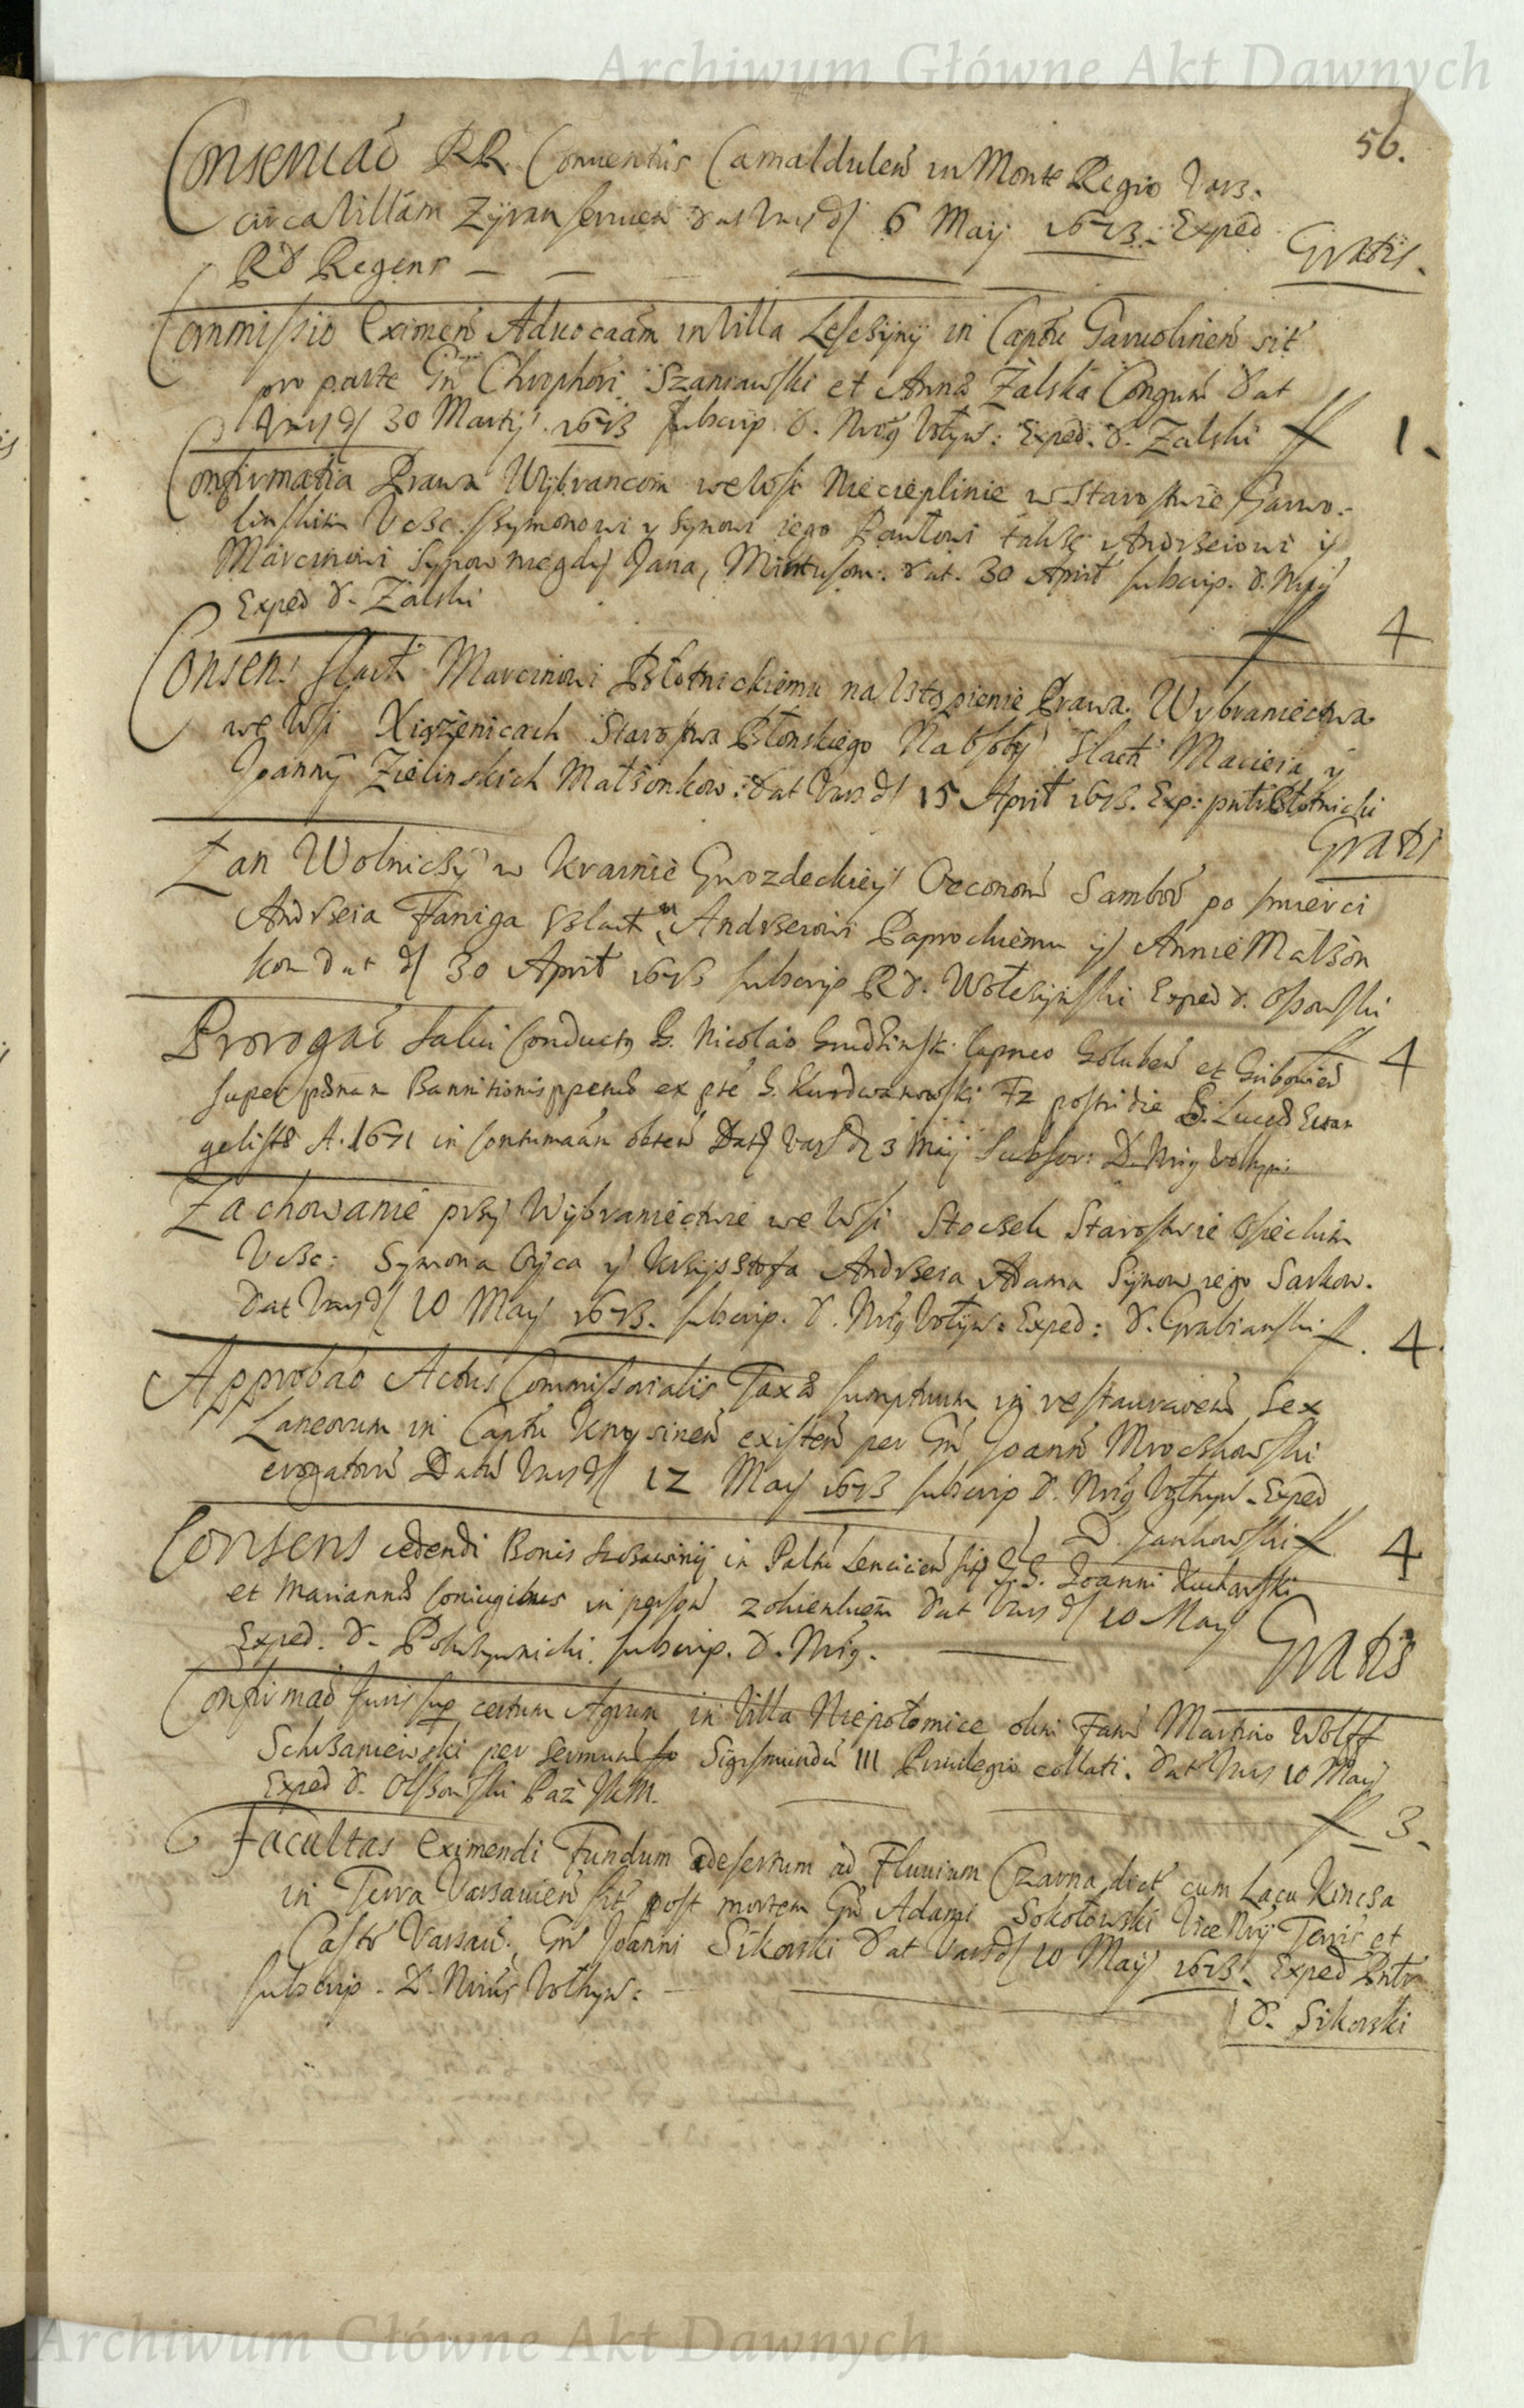 Archiwum Główne Akt Dawnych
56.
Conservaõ RR Conventus Camaldulen̄ in Monte Regio Vars.
circa Villam Zyran servien̄ Dat Vars d 6 Maij 1673. Exped
RD Regens — — Gratis.
Commissio Eximen̄ Advocaãm in Villa in Captu Garvolinen̄ sit
pro parte Gn̄ Chrophori Szaniawski et Annæ Zalska Congum̄ Dat
Vars d 30 Martij 1673 subscrip. D. Nrũ Wołyn: Exped. D. Zalski ff 1.
Confirmatia Prawa Wybrancom we Wsi Niecieplinie w Starostwie Garwo-
linskim Vcsc. Szymonowi y Synowi iego Pawłowi takze Andrzeiowi y
Marcinowi Synow niegdy Jana, Mintusom: Dat. 30 April subscrip. D.
Exped D. Zalski
f 4
Consens Slach Marcinowi Błotnickiemu na Vstopienie Prawa Wybraniectwa
we Wsi Xiązenicach Starostwa Błonskiego Na Osoby Slach Macieia y
Joanny Zielinskich Małzonkow: Dat Vars d 15 April 1673. Exp: pntr Błotnicki
Gratis
Łan Wolniczy w Krainie Gwozdeckiey Oeconom̄ Sambor̄ po smierci
Andrzeia Faniga Szlach. Andrzeiowi Paprockiemu y Annie Małzon
kom Dat d 30 April 1673 subscrip RD. Wołczynski Exped D. Ossowski
f 4
Prorogat Salvi Conductus G. Nicolao Grudzinski Capneo Goluben̄ et Gribovien̄
super pænam Bannitionis ppetuæ ex pte G. Kurdwanowski Fz postridie S. Lucæ Evan
gelistæ A. 1671 in contumaãm obten̄ Dat Vars d 3 Maij Subscr: D. Nrũ Wołhyn:
Zachowanie przy Wybraniectwie we Wsi Stoczek Starostwie Osieckim
Vczc: Symona Oyca y Krzysstofa Andrzeia Adama Synow iego Sarkow.
Dat Vars d 10 May 1673. subscrip. D. Nrũ Wołyn: Exped: D. Grabianski f. 4.
Approbaõ Actus Commissorialis Taxæ sumptuum in restauraoem̄ sex
Laneorum in Captu Knysinen̄ existen̄ per Gn̄ Joann̄ Mroczkowski
erogatorū Datū Vars d 12 May 1673 subscrip D. Nrũ Wołhyn. Exped
D. Jankowski f. 4
Consens cedendi Bonis in Paltu Lencicien̄ sit G.G. Joanni Kucharski
et Mariannæ Coniugibus in person̄ Dat Vars d 10 May
Exped. D. subscrip. D. Nrũ. — Gratis
Confirmaõ Juris sup certum Agrum in Villa Niepołomice olim Fam̄ Martino Wolff
Schszaniewski per Sermum̄ Sigismundū III Privilegio collati. Dat Vars 10 May
Exped D. Olssowski Paz JKM.
f 3.
Facultas Eximendi Fundum desertum ad Fluvium Czarna dict cum Lacu Kincsa
in Terra Varsavien̄ sit post mortem Gn̄ Adami Sokołowski Vice Terris et
Castr Varsav. Gn̄ Joanni Sikorski Dat Vars d 10 May 1673. Exped Pntr
subscrip. D. Wołhyn: — D. Sikorski
Archiwum Główne Akt Dawnych